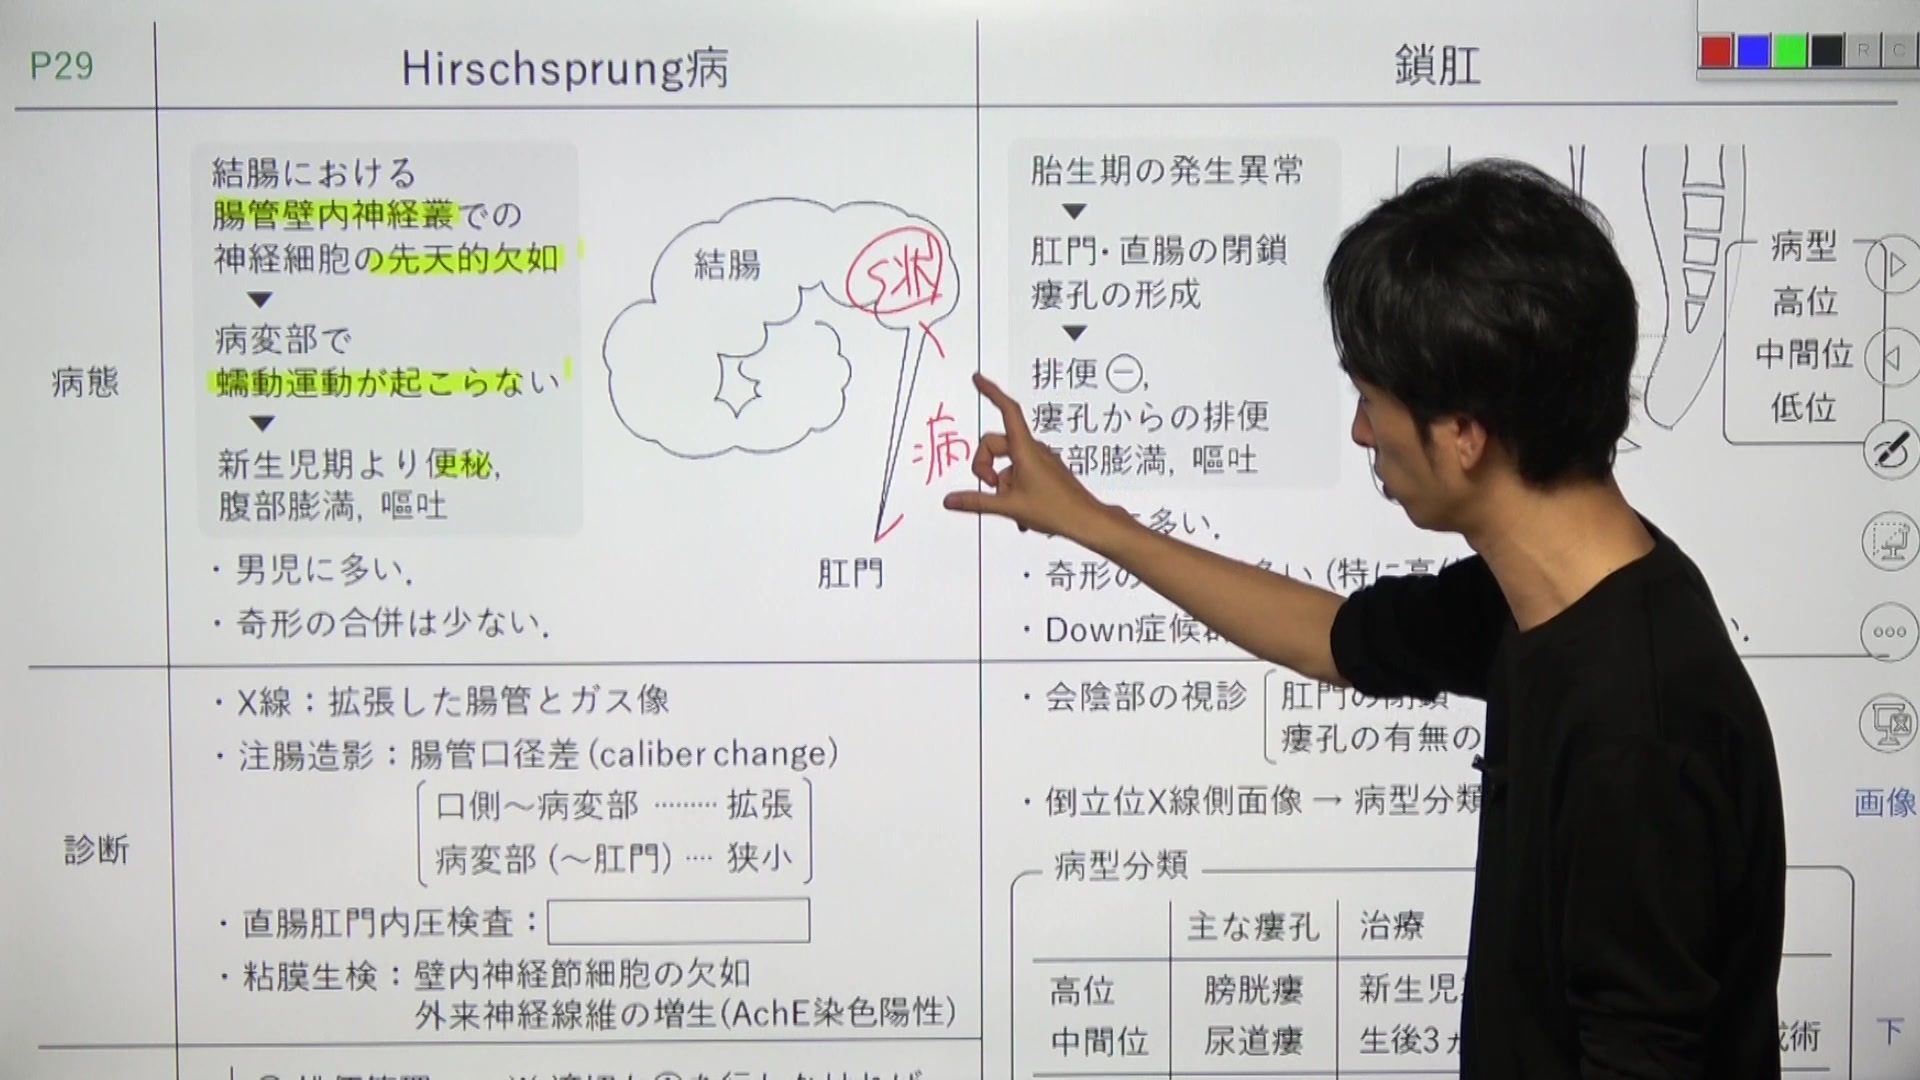 P29
Hirschsprung病
鎖肛
病態
結腸における
腸管壁内神経叢での
神経細胞の先天的欠如
▼
病変部で
蠕動運動が起こらない
▼
新生児期より便秘,
腹部膨満, 嘔吐
・男児に多い.
・奇形の合併は少ない.
結腸
S状
病
肛門
胎生期の発生異常
▼
肛門・直腸の閉鎖
瘻孔の形成
▼
排便㊀,
瘻孔からの排便
部膨満, 嘔吐
多い.
・奇形の
多い (特に高
・Down症候群
病型
高位
中間位
低位
診断
・X線：拡張した腸管とガス像
・注腸造影：腸管口径差 (caliber change)
口側～病変部 ……… 拡張
病変部 (～肛門) …. 狭小
・直腸肛門内圧検査：
・粘膜生検：壁内神経節細胞の欠如
外来神経線維の増生(AchE染色陽性)
・会陰部の視診
肛門の閉鎖
瘻孔の有無の
・倒立位X線側面像 → 病型分類
病型分類
主な瘻孔 治療
高位 膀胱瘻 新生児
中間位 尿道瘻 生後3
術
R C
画像
下